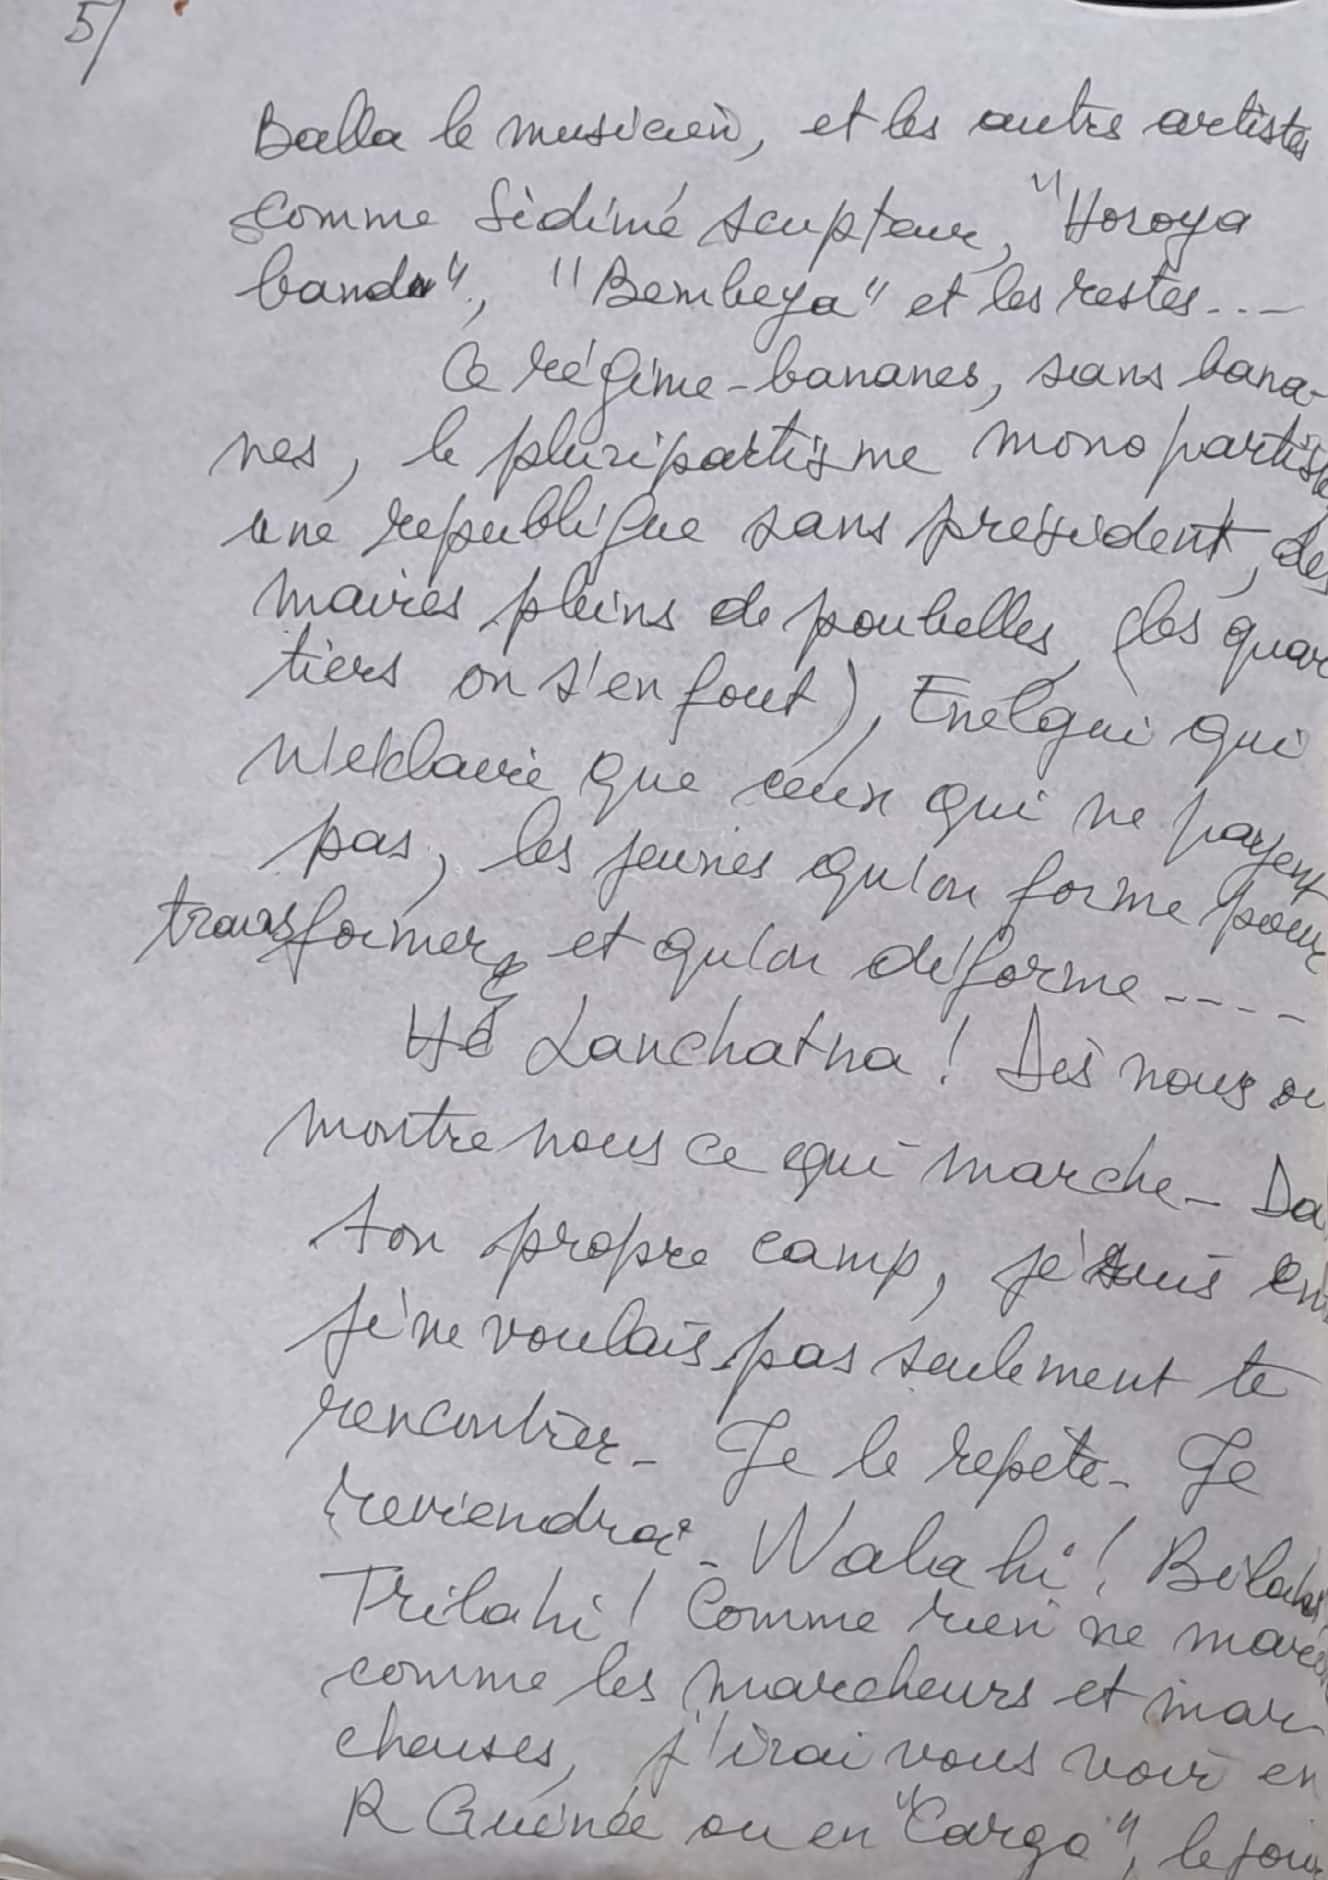 5/
Balla le musicien, et les autres artistes
comme Sidimé scupteur, "Horoya
band", "Bembeya" et les restes...
Ce régime-bananes, sans bana-
nes, le pluripartisme monopartiste
une republique sans president, des
maires pleins de poubelles, (les quar
tiers on s'en fout), Enelgui qui
n'éclaire que ceux qui ne payent
pas, les jeunes qu'on forme pour
transformer, et qu'on déforme ----
Hé Lanchatna! Dis nous ou
montre nous ce qui marche - Da
ton propre camp, je suis en
je ne voulais pas seulement te
rencontrer - Je le repète - Je
reviendrai - Walahi! Bilahi,
Trilahi! Comme rien ne marche
comme les marcheurs et mar
cheuses, j'irai vous voir en
R Guinée ou en "Cargo", le jour